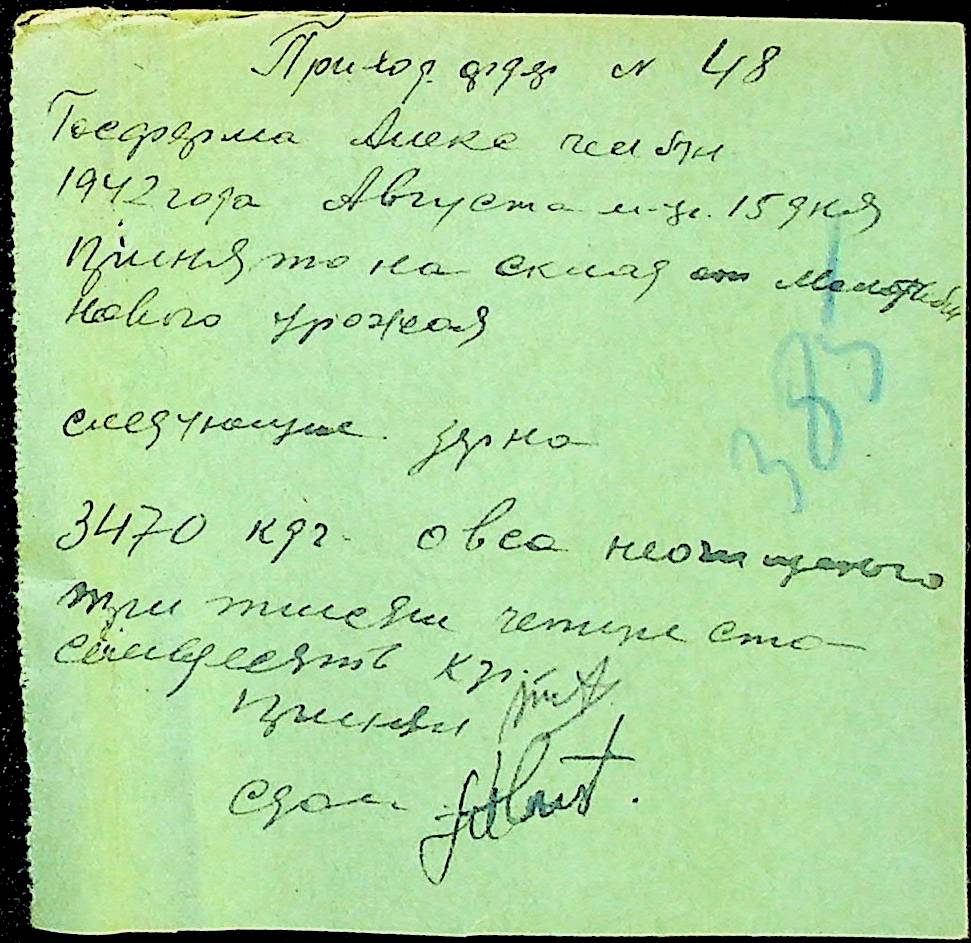 Приход. ордер № 48
Госферма Алексе
1942 года Августа м-ца. 15 дня
Принято на склад от Молотьбы
нового урожая
следующие зерна
3470 клг. овса неочищеного
три тисячи четириста
семьдесять кг.
Приняв
Сдал
385